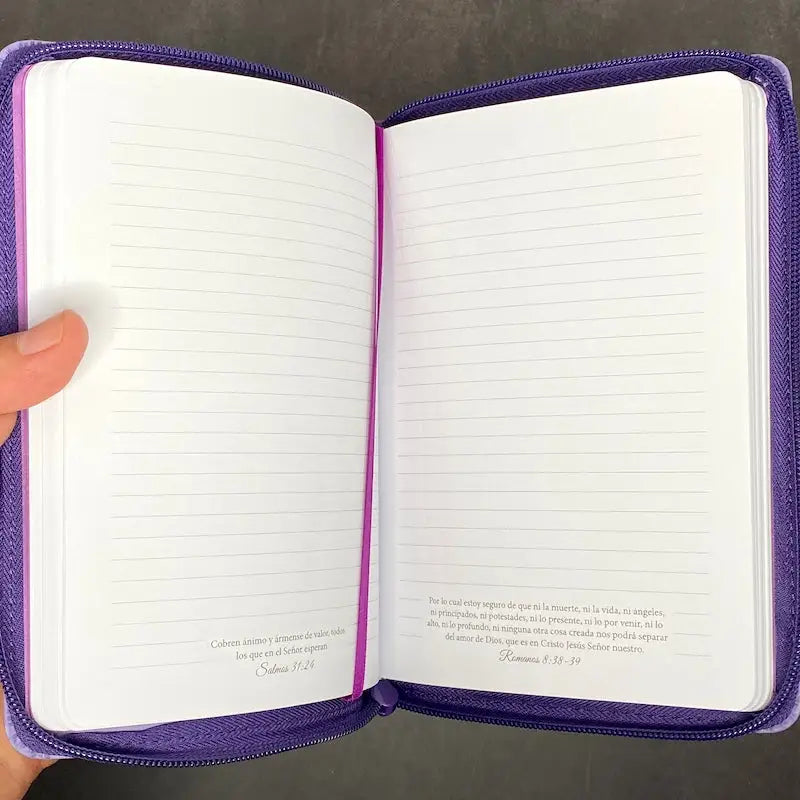 Cobren ánimo y ármense de valor, todos
los que en el Señor esperan
Salmos 31:24
Por lo cual estoy seguro de que ni la muerte, ni la vida, ni ángeles,
ni principados, ni potestades, ni lo presente, ni lo por venir, ni lo
alto, ni lo profundo, ni ninguna otra cosa creada nos podrá separar
del amor de Dios, que es en Cristo Jesús Señor nuestro.
Romanos 8:38-39